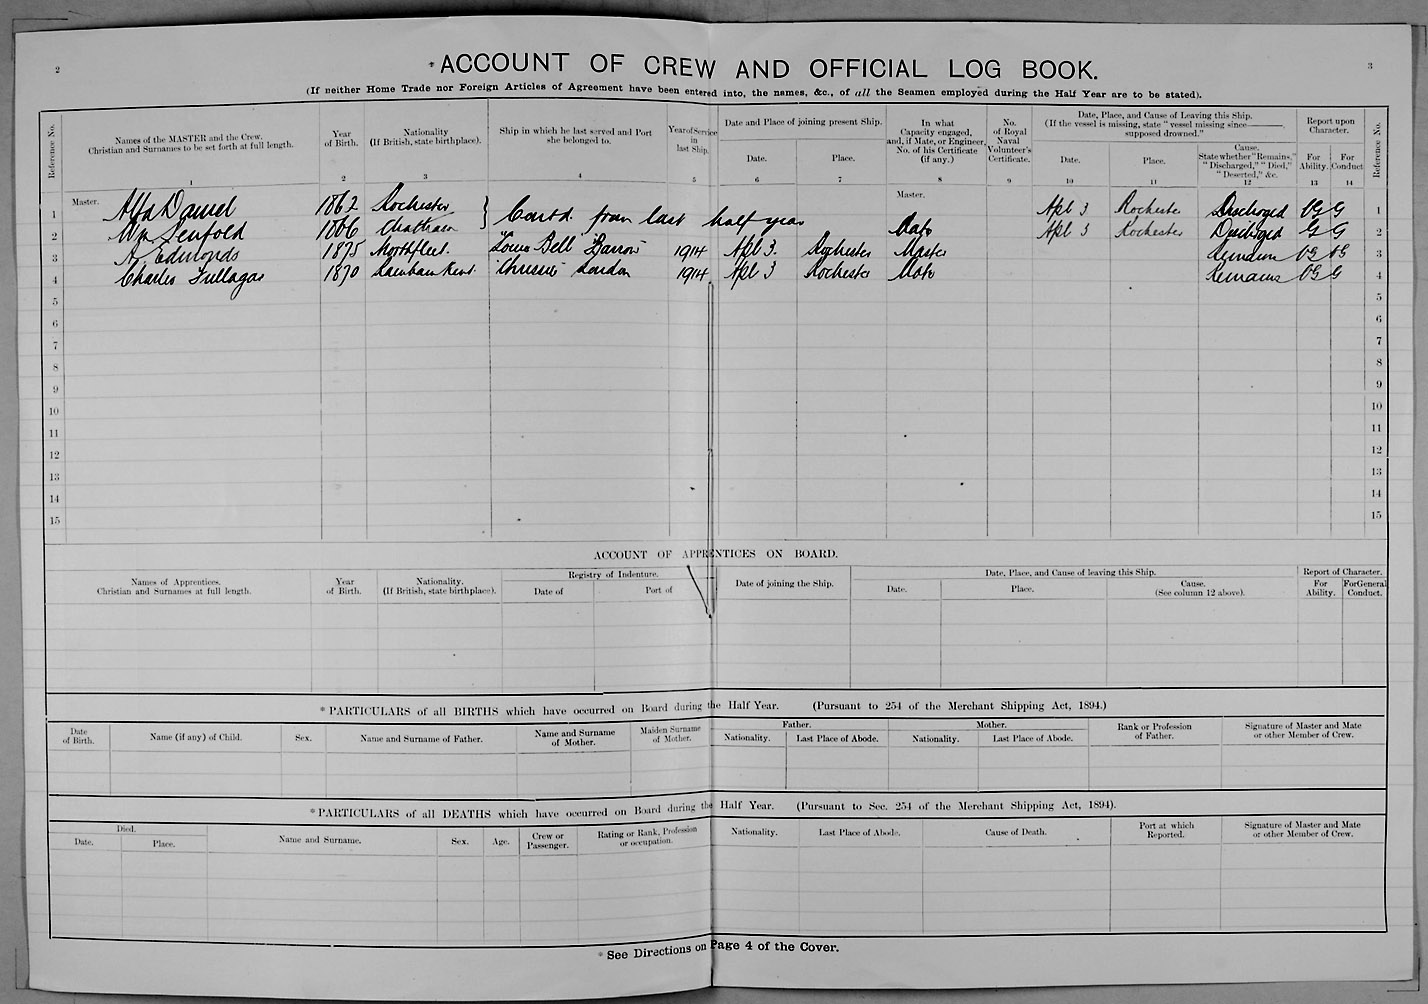 2
3
*ACCOUNT OF CREW AND OFFICIAL LOG BOOK.
(If neither Home Trade nor Foreign Articles of Agreement have been entered into, the names, &c., of all the Seamen employed during the Half Year are to be stated).
Reference No. Names of the MASTER and the Crew. Christian and Surnames to be set forth at full length. 1 Year of Birth. 2 Nationality (If British, state birthplace). 3 Ship in which he last served and Port she belonged to. 4 Year of Service in last Ship. 5 Date and Place of joining present Ship. Date. 6 Place. 7 In what Capacity engaged, and, if Mate, or Engineer, No. of his Certificate (if any.) 8 No. of Royal Naval Volunteer's Certificate. 9 Date, Place, and Cause of Leaving this Ship. (If the vessel is missing, state "vessel missing since———, supposed drowned." Date. 10 Place. 11 Cause. State whether "Remains," "Discharged," "Died," "Deserted," &c. 12 Report upon Character. For Ability. 13 For Conduct 14 Reference No.
1 Master. Alfd Daniel 1862 Rochester } Contd. from last half year Master. Apl 3 Rochester Discharged VG G 1
2 Wm Penfold 1866 Chatham Mate Apl 3 Rochester Discharged G G 2
3 A. Edmonds 1875 Northfleet. Bell "Barrow" 1914 Apl 3. Rochester Master Remain VG VG 3
4 Charles Fullagar 1870 Rainham Kent. London 1914 Apl 3 Rochester Mate Remains VG G 4
5 5
6 6
7 7
8 8
9 9
10 10
11 11
12 12
13 13
14 14
15 15
ACCOUNT OF APPRENTICES ON BOARD.
Names of Apprentices. Christian and Surnames at full length. Year of Birth. Nationality. (If British, state birthplace). Registry of Indenture. Date of Port of Date of joining the Ship. Date, Place, and Cause of leaving this Ship. Date. Place. Cause. (See column 12 above). Report of Character. For Ability. For General Conduct.
*PARTICULARS of all BIRTHS which have occurred on Board during the Half Year. (Pursuant to 254 of the Merchant Shipping Act, 1894.)
Date of Birth. Name (if any) of Child. Sex. Name and Surname of Father. Name and Surname of Mother. Maiden Surname of Mother. Father. Nationality. Last Place of Abode. Mother. Nationality. Last Place of Abode. Rank or Profession of Father. Signature of Master and Mate or other Member of Crew.
*PARTICULARS of all DEATHS which have occurred on Board during the Half Year. (Pursuant to Sec. 254 of the Merchant Shipping Act, 1894).
Died. Date. Place. Name and Surname. Sex. Age. Crew or Passenger. Rating or Rank, Profession or occupation. Nationality. Last Place of Abode. Cause of Death. Port at which Reported. Signature of Master and Mate or other Member of Crew.
*See Directions on Page 4 of the Cover.